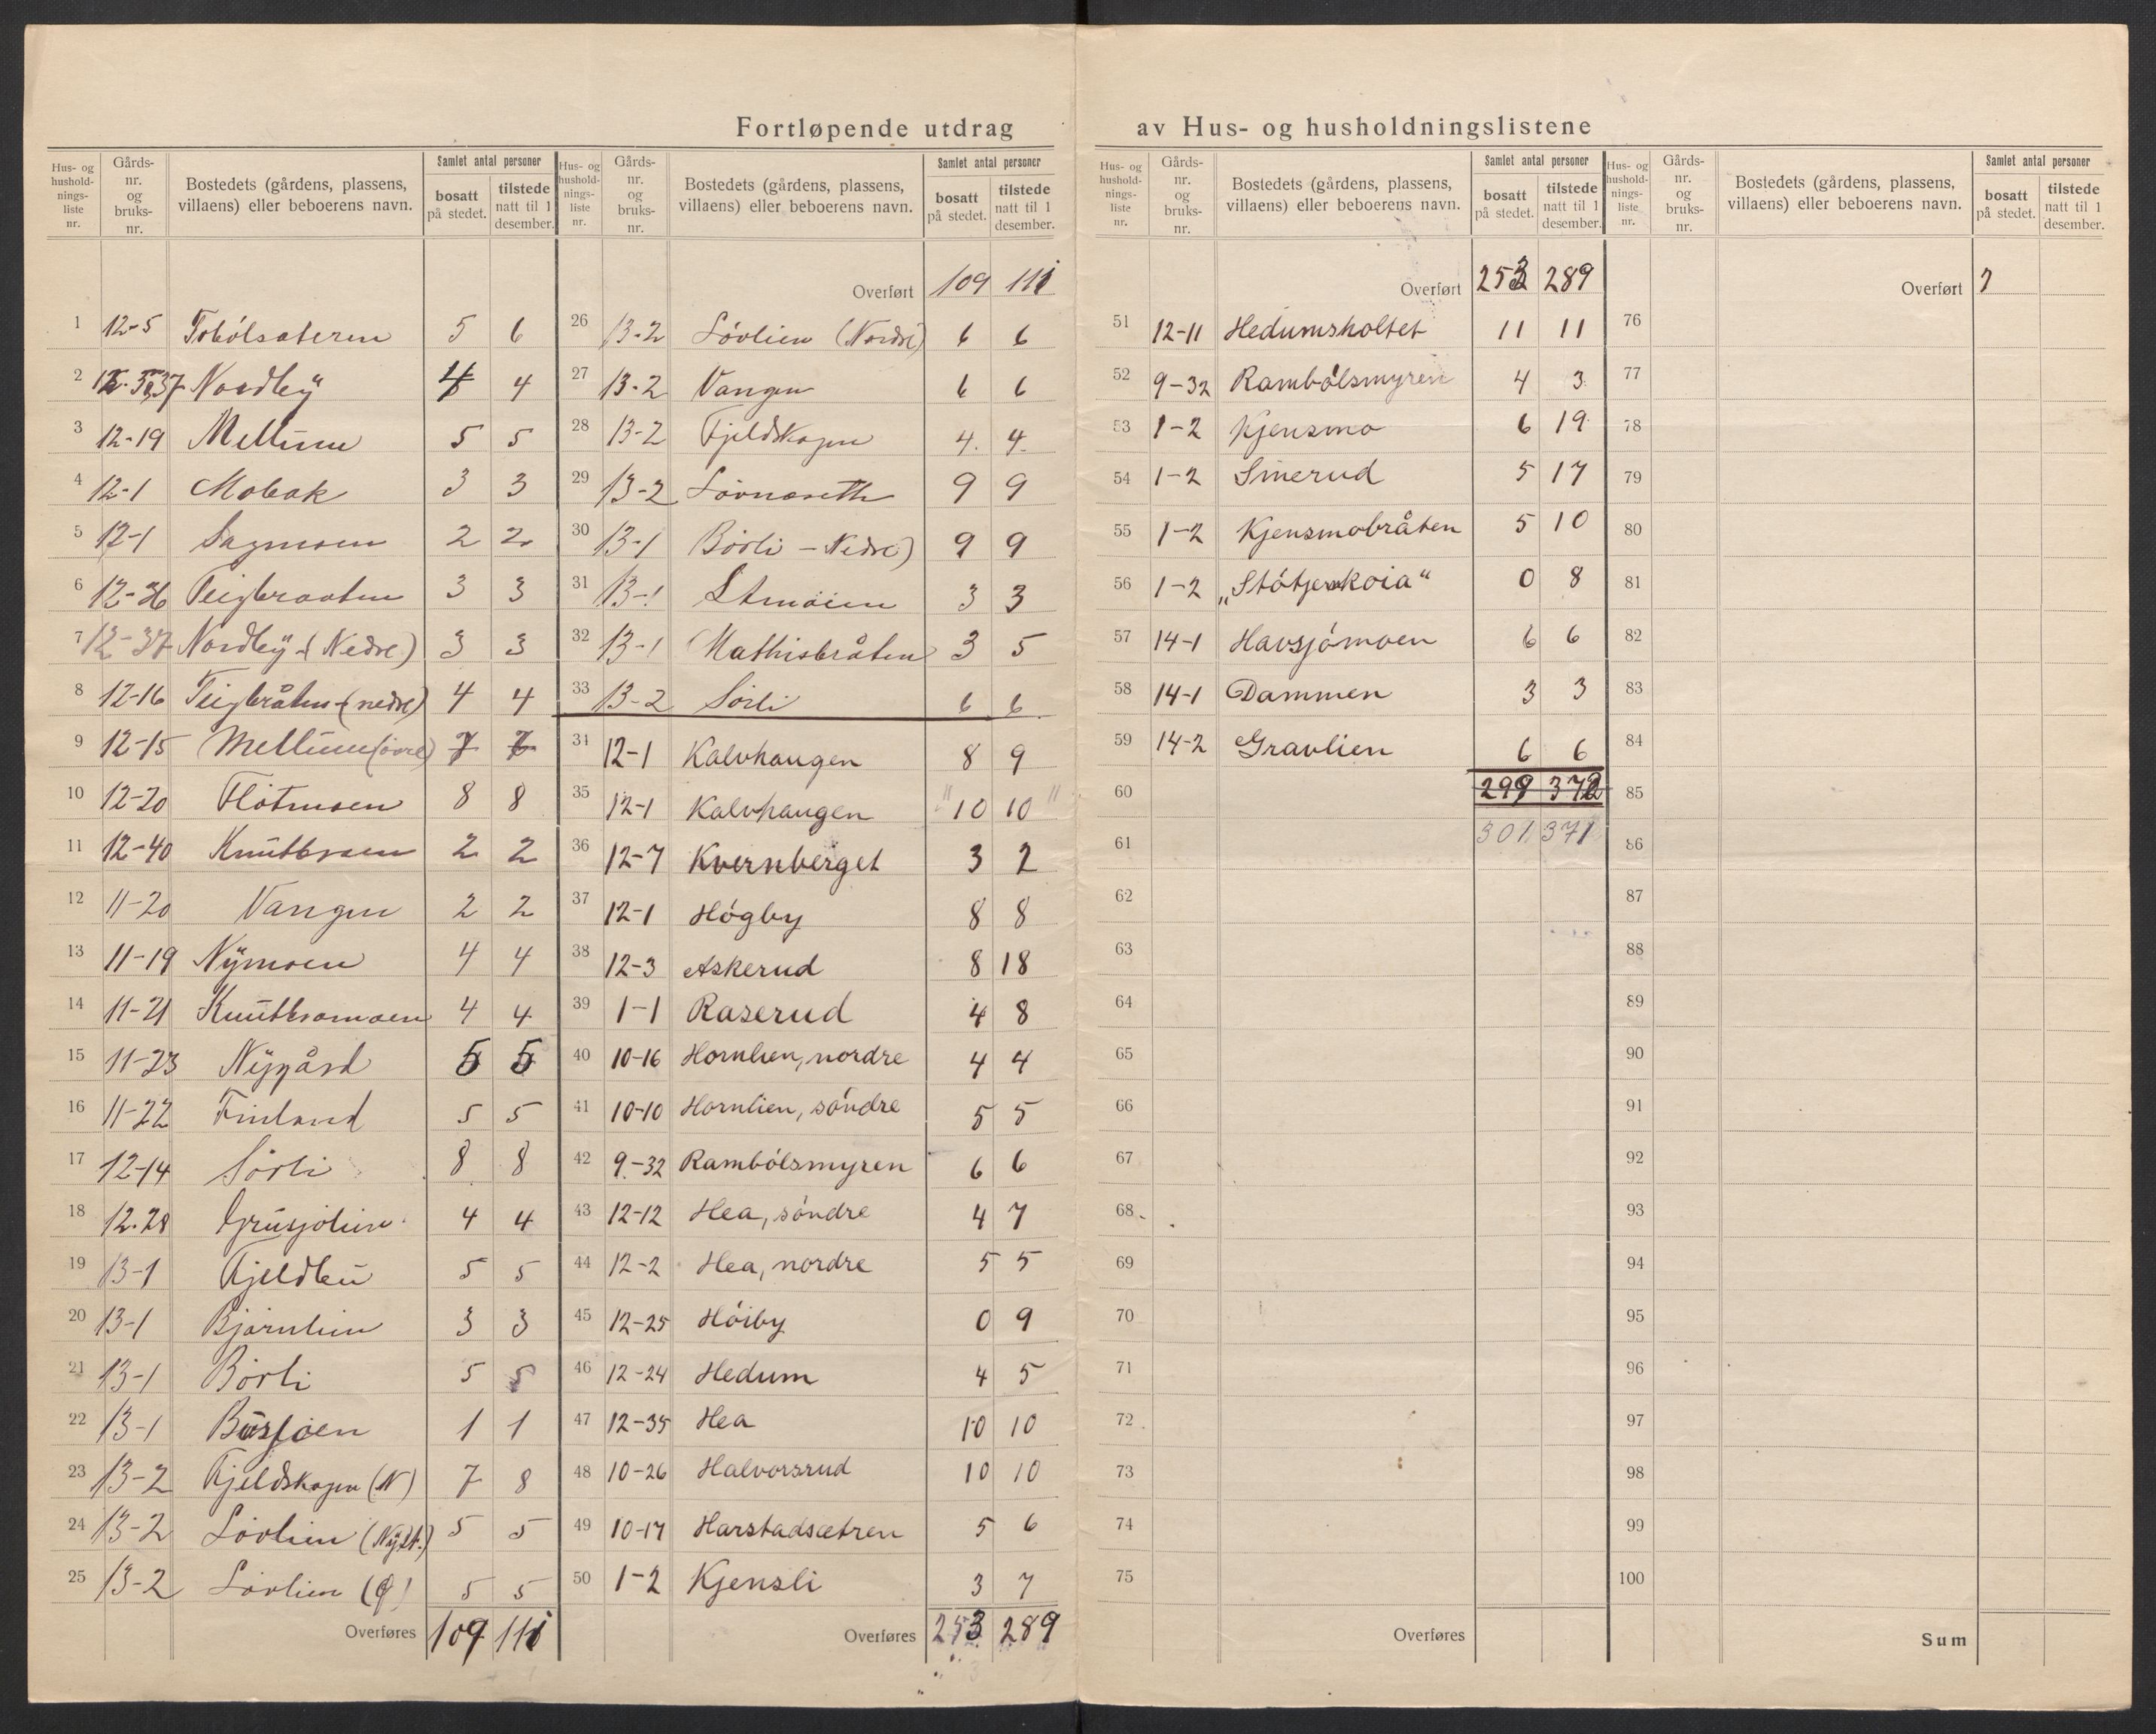 Fortløpende utdrag av Hus- og husholdningslistene
Hus- og husholdnings-liste nr. | Gårds-nr. og bruks-nr. | Bostedets (gårdens, plassens, villaens) eller beboerens navn. | Samlet antal personer | bosatt på stedet. | tilstede natt til 1 desember.
1 12-5 Tobólsæteren 5 6
2 Nordby 4 4
3 12-19 Mellum 5 5
4 12-1 Mobak 3 3
5 12-1 Sagmoen 2 2
6 12-36 Teigbraaten 3 3
7 12-37 Nordby (Nedre) 3 3
8 12-16 Teigbråten (nedre) 4 4
9 12-15 Mellum (övre) 7 7
10 12-20 Flötmoen 8 8
11 12-40 2 2
12 11-20 Vangen 2 2
13 11-19 Nymoen 4 4
14 11-21 4 4
15 11-23 Nygård 5 5
16 11-22 Finland 5 5
17 12-14 Sörli 8 8
18 12.28 Grusjölien 4 4
19 13-1 Fjeldbu 5 5
20 13-1 Bjørnlien 3 3
21 13-1 Börli 5 5
22 13-1 Busjöen 1 1
23 13-2 Fjeldskogen (N) 7 8
24 13-2 Lövlien 5 5
25 13-2 Lövlien 5 5
Overføres 109 111
Hus- og husholdnings-liste nr. | Gårds-nr. og bruks-nr. | Bostedets (gårdens, plassens, villaens) eller beboerens navn. | Samlet antal personer | bosatt på stedet. | tilstede natt til 1 desember.
Overført 109 111
26 13-2 Lövlien (Nordre) 6 6
27 13-2 Vangen 6 6
28 13-2 Fjeldskogen 4. 4.
29 13-2 Lövnæseth 9 9
30 13-1 Börli - Nedre) 9 9
31 13-1 3 3
32 13-1 Mathisbråten 3 5
33 13-2 Sörli 6 6
34 12-1 Kalvhaugen 8 9
35 12-1 Kalvhaugen " 10 10 "
36 12-7 Kvernberget 3 2
37 12-1 Högby 8 8
38 12-3 Askerud 8 18
39 1-1 Raserud 4 8
40 10-16 Hornlien, nordre 4 4
41 10-10 Hornlien, söndre 5 5
42 9-32 Rambólsmyren 6 6
43 12-12 Hea, söndre 4 7
44 12-2 Hea, nordre 5 5
45 12-25 Höiby 0 9
46 12-24 Hedum 4 5
47 12-35 Hea 10 10
48 10-26 Halvorsrud 10 10
49 10-17 Harstadsætren 5 6
50 1-2 Kjensli 3 7
Overføres 253 289
Hus- og husholdnings-liste nr. | Gårds-nr. og bruks-nr. | Bostedets (gårdens, plassens, villaens) eller beboerens navn. | Samlet antal personer | bosatt på stedet. | tilstede natt til 1 desember.
Overført 253 289
51 12-11 Hedumsholtet 11 11
52 9-32 Rambólsmyren 4 3
53 1-2 Kjensmo 6 19
54 1-2 Smerud 5 17
55 1-2 Kjensmobråten 5 10
56 1-2 „Stötjernkoia" 0 8
57 14-1 Havsjömoen 6 6
58 14-1 Dammen 3 3
59 14-2 Gravlien 6 6
60 299 372
61 301 371
62
63
64
65
66
67
68
69
70
71
72
73
74
75
Overføres
Hus- og husholdnings-liste nr. | Gårds-nr. og bruks-nr. | Bostedets (gårdens, plassens, villaens) eller beboerens navn. | Samlet antal personer | bosatt på stedet. | tilstede natt til 1 desember.
Overført
76
77
78
79
80
81
82
83
84
85
86
87
88
89
90
91
92
93
94
95
96
97
98
99
100
Sum